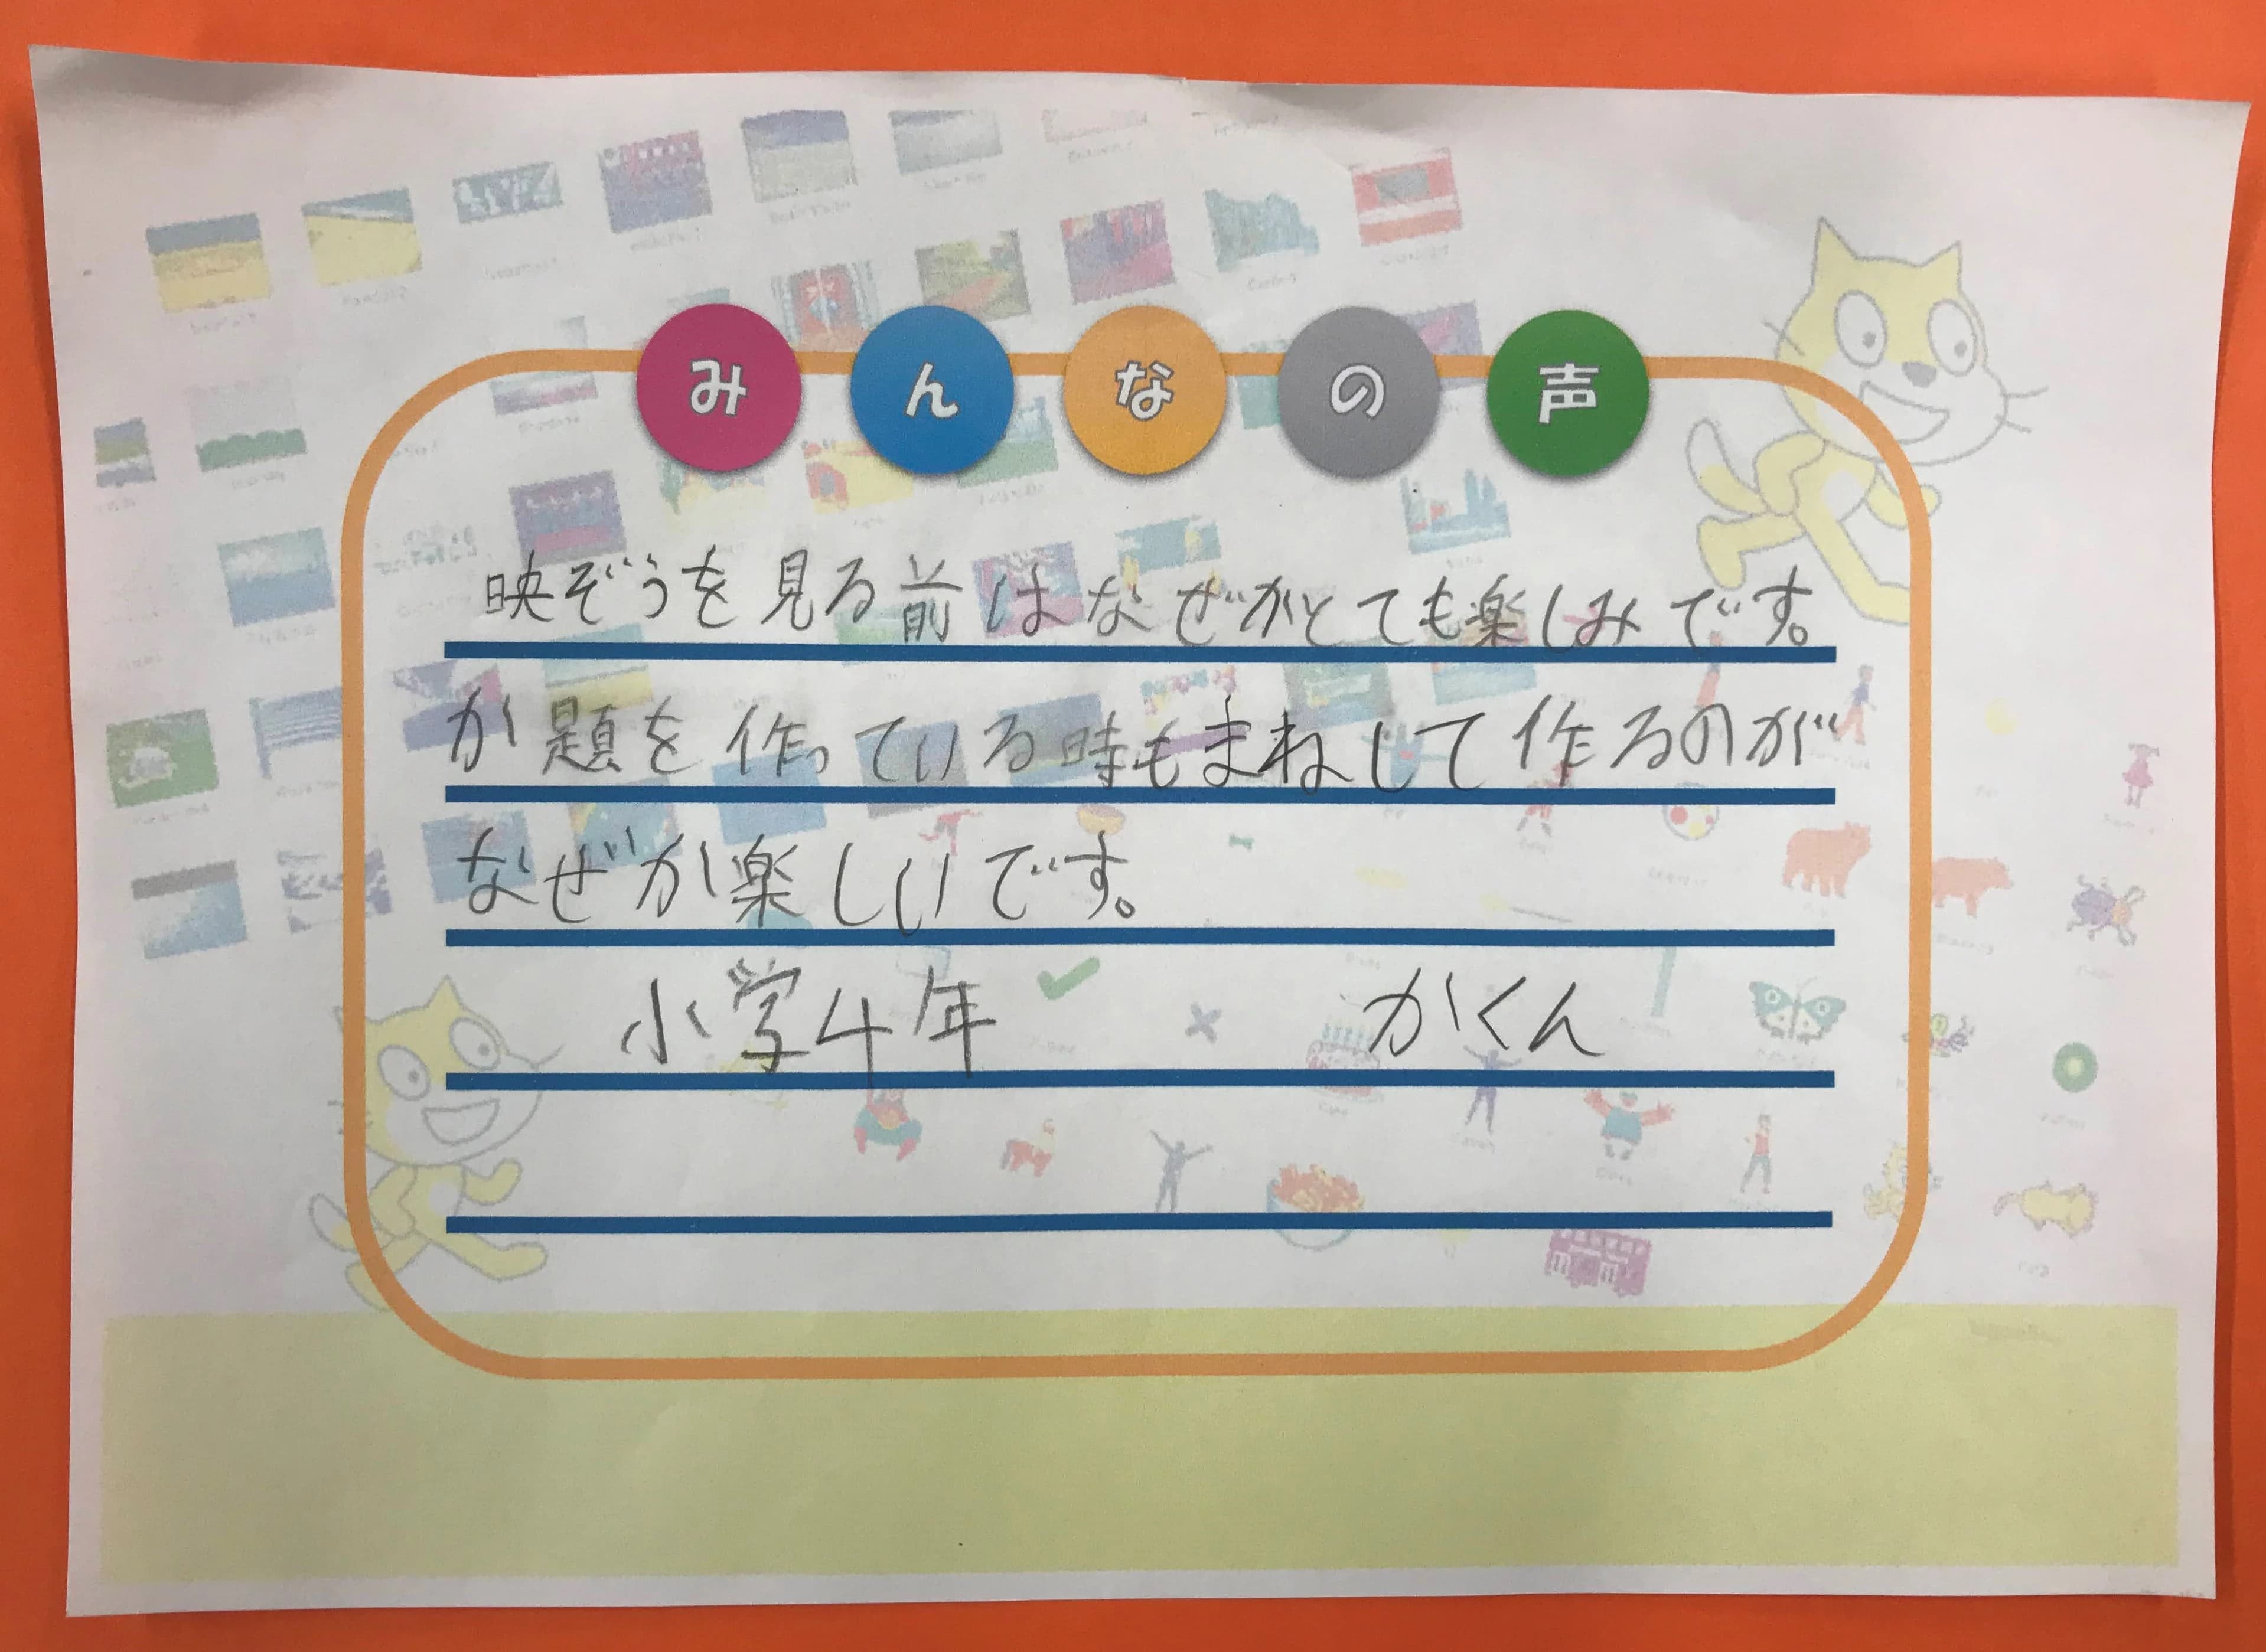 みんなの声
映ぞうを見る前はなぜかとても楽しみです。
か題を作っている時もまねして作るのが
なぜか楽しいです。
小学4年 かくん